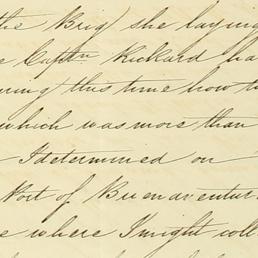 the Brig she laying
Captn Rickard ha
uring this time how to
which was more than
I determined on
Port of Buenaventur
e where I might coll